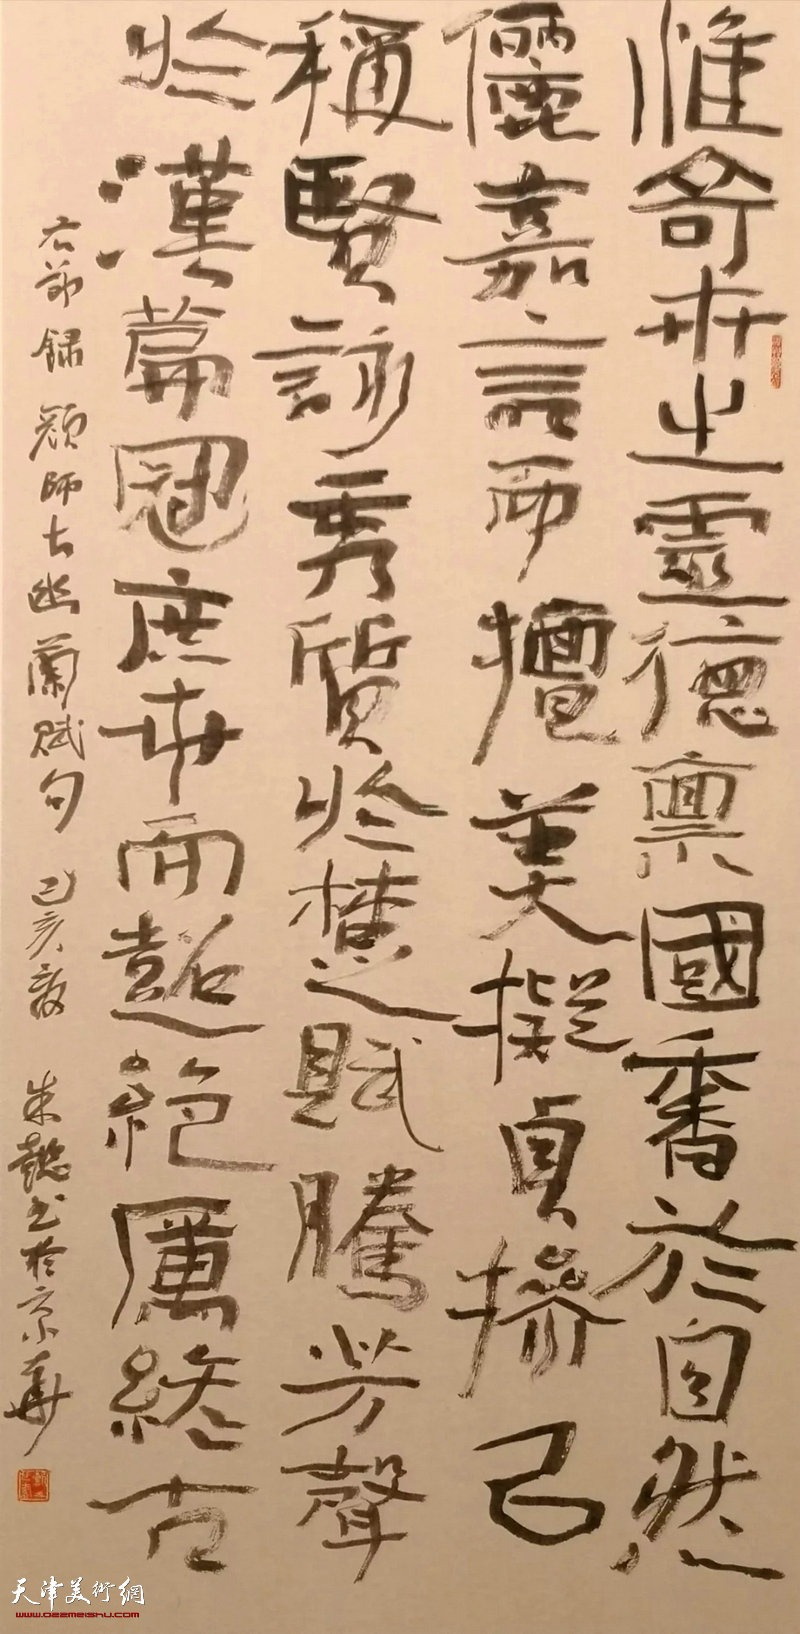 惟奇卉之靈德禀國香於自然
儷嘉言而擅美擬貞操己
稱賢詠秀質於楚賦騰芳聲
於漢篇冠庶卉而超絕厲終古
右節錄顏師古幽蘭賦句 己亥夏 朱懿书於京華
天津美術網
www.022meishu.com